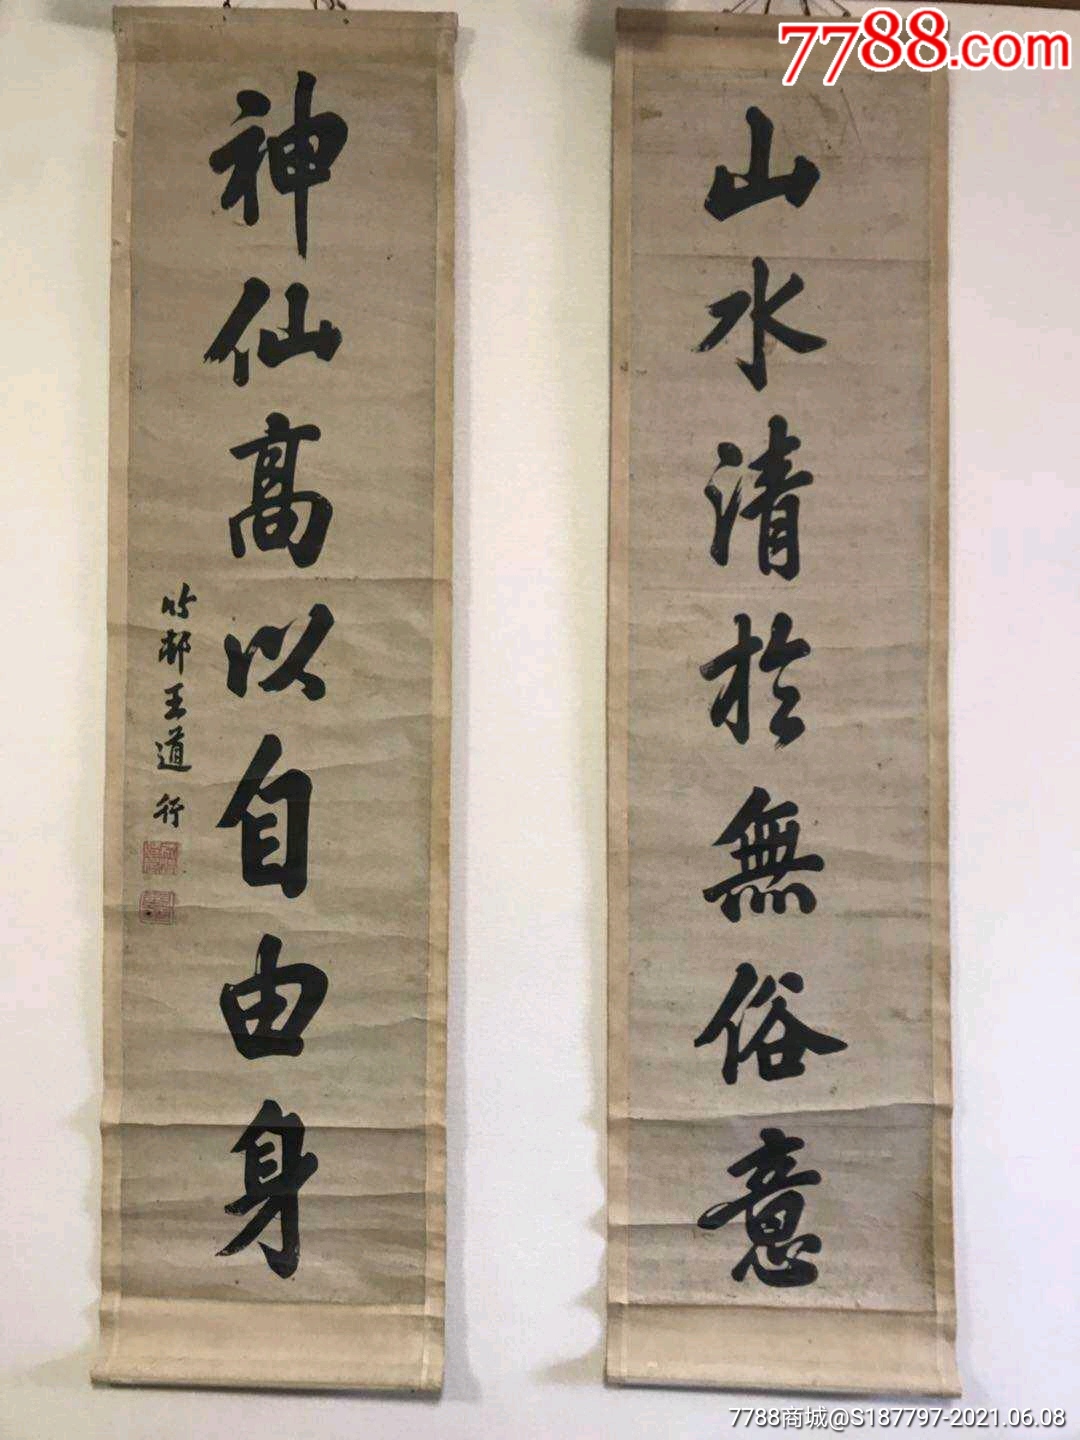 7788.com
山水清於無俗意
神仙高以自由身
竹邨王道行
7788商城@S187797-2021.06.08